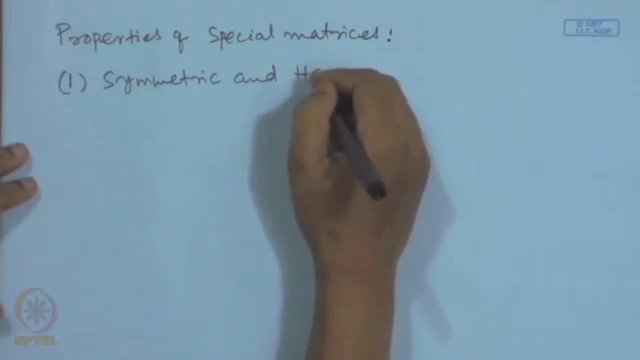 Properties of Special matrices:
(1) Symmetric and He
© CET
I.I.T. KGP
NPTEL